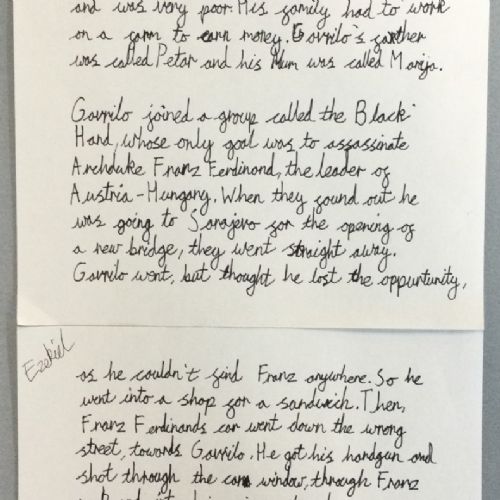 and was very poor. His family had to work
on a farm to earn money. Gavrilo's father
was called Petar and his Mum was called Marija.
Gavrilo joined a group called the Black
Hand, whose only goal was to assassinate
Archduke Franz Ferdinand, the leader of
Austria-Hungary. When they found out he
was going to Sarajevo for the opening of
a new bridge, they went straight away.
Gavrilo went, but thought he lost the oppurtunity,
Ezekiel
as he couldn't find Franz anywhere. So he
went into a shop for a sandwich. Then,
Franz Ferdinands car went down the wrong
street, towards Gavrilo. He got his handgun and
shot through the car window, through Franz